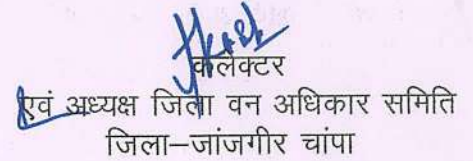 कलेक्टर
एवं अध्यक्ष जिला वन अधिकार समिति
जिला–जांजगीर चांपा